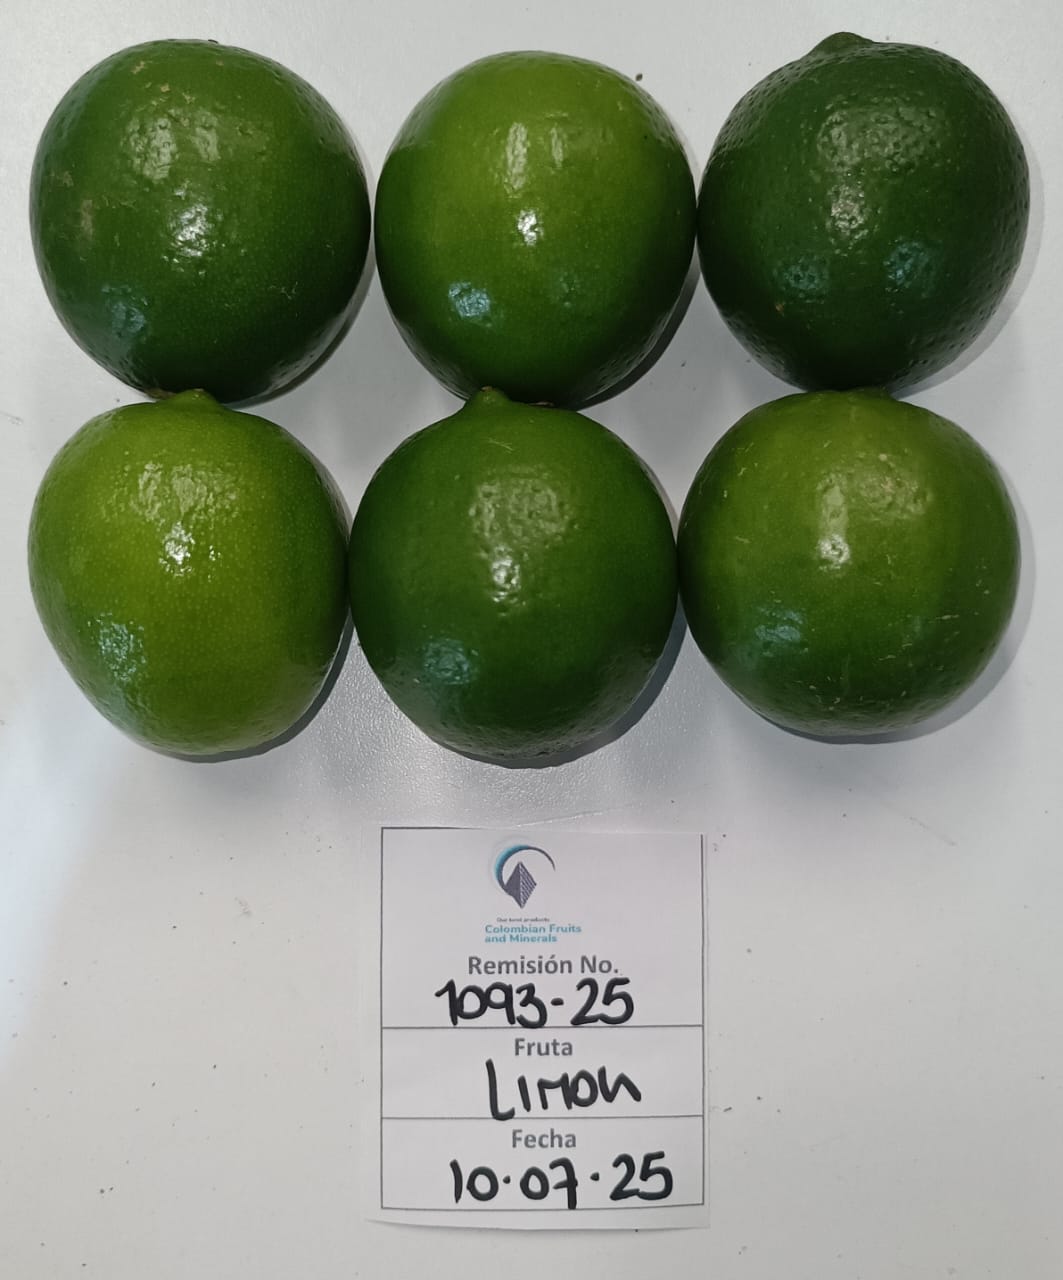 Our best products
Colombian Fruits
and Minerals
Remisión No.
1093-25
Fruta
LIMON
Fecha
10.07.25